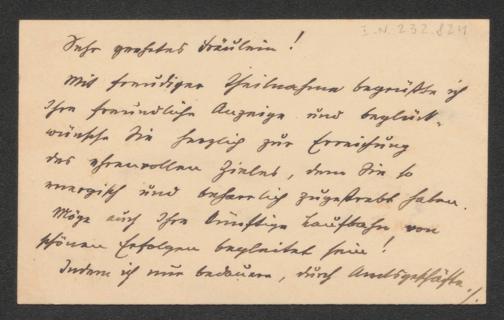 I.N. 232.824
Sehr geehrtes Fräulein!
Mit freudiger Theilnahme begrüßte ich
Ihre freundliche Anzeige und beglück-
wünsche Sie herzlich zur Erreichung
des ehrenvollen Zieles, dem Sie so
energisch und beharrlich zugestrebt haben.
Möge auch Ihre künftige Laufbahn von
schönen Erfolgen begleitet sein!
Indem ich nur bedauere, durch Amtsgeschäfte ./.